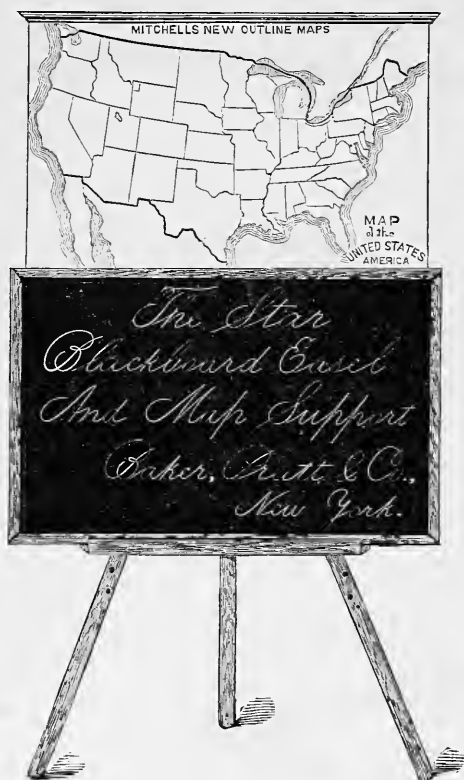 MITCHELLS NEW OUTLINE MAPS
MAP
of the
UNITED STATES
AMERICA
The Star
Blackboard Easel
And Map Support
Baker, Pratt & Co.,
New York.